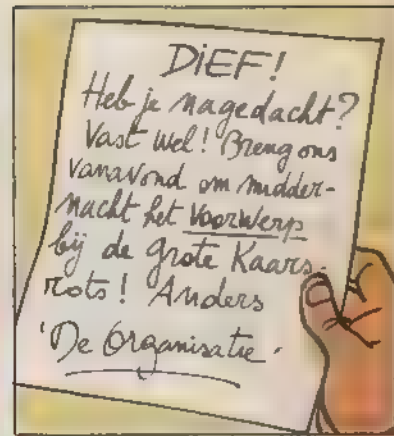 DIEF!
Heb je nagedacht?
Vast wel! Breng ons
vanavond om midder-
nacht het Voorwerp
bij de grote Kaars-
rots! Anders
'De Organisatie'